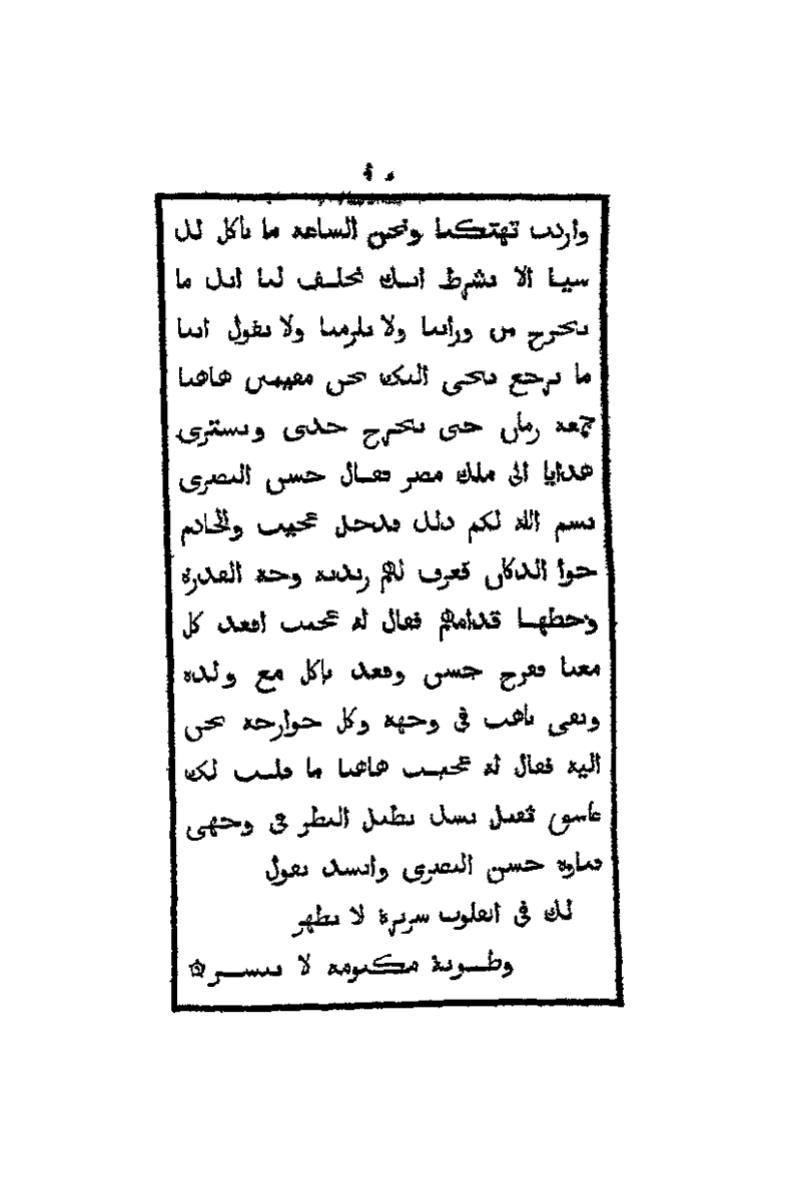 واردت تهتكنا ونحن الساعه ما ناكل لك
سيا الا بشرط انك تحلف لنا انك ما
تخرج من ورانا ولا تلزمنا ولا تقول اننا
ما نرجع نجى اليك نحن مقيمين هاهنا
جمعه زمان حتى يخرج جدى ويشترى
هدايا الى ملك مصر فقال حسن البصرى
بسم الله لكم ذلك فدخل عجيب والخادم
جوا الدكان فغرف لهم زبديه وجه القدرة
وحطها قدامهم فقال له عجيب اقعد كل
معنا ففرح حسن وقعد ياكل مع ولده
وبقى باهت فى وجهه وكل جوارحه نحن
اليه فقال له عجيب هاهنا ما قلت لك
عاسق تقيل بسك تطيل النظر فى وجهى
حسن البصرى وانسد يقول
لك فى القلوب سريرة لا تظهر
وطوية مكتومه لا تنسر